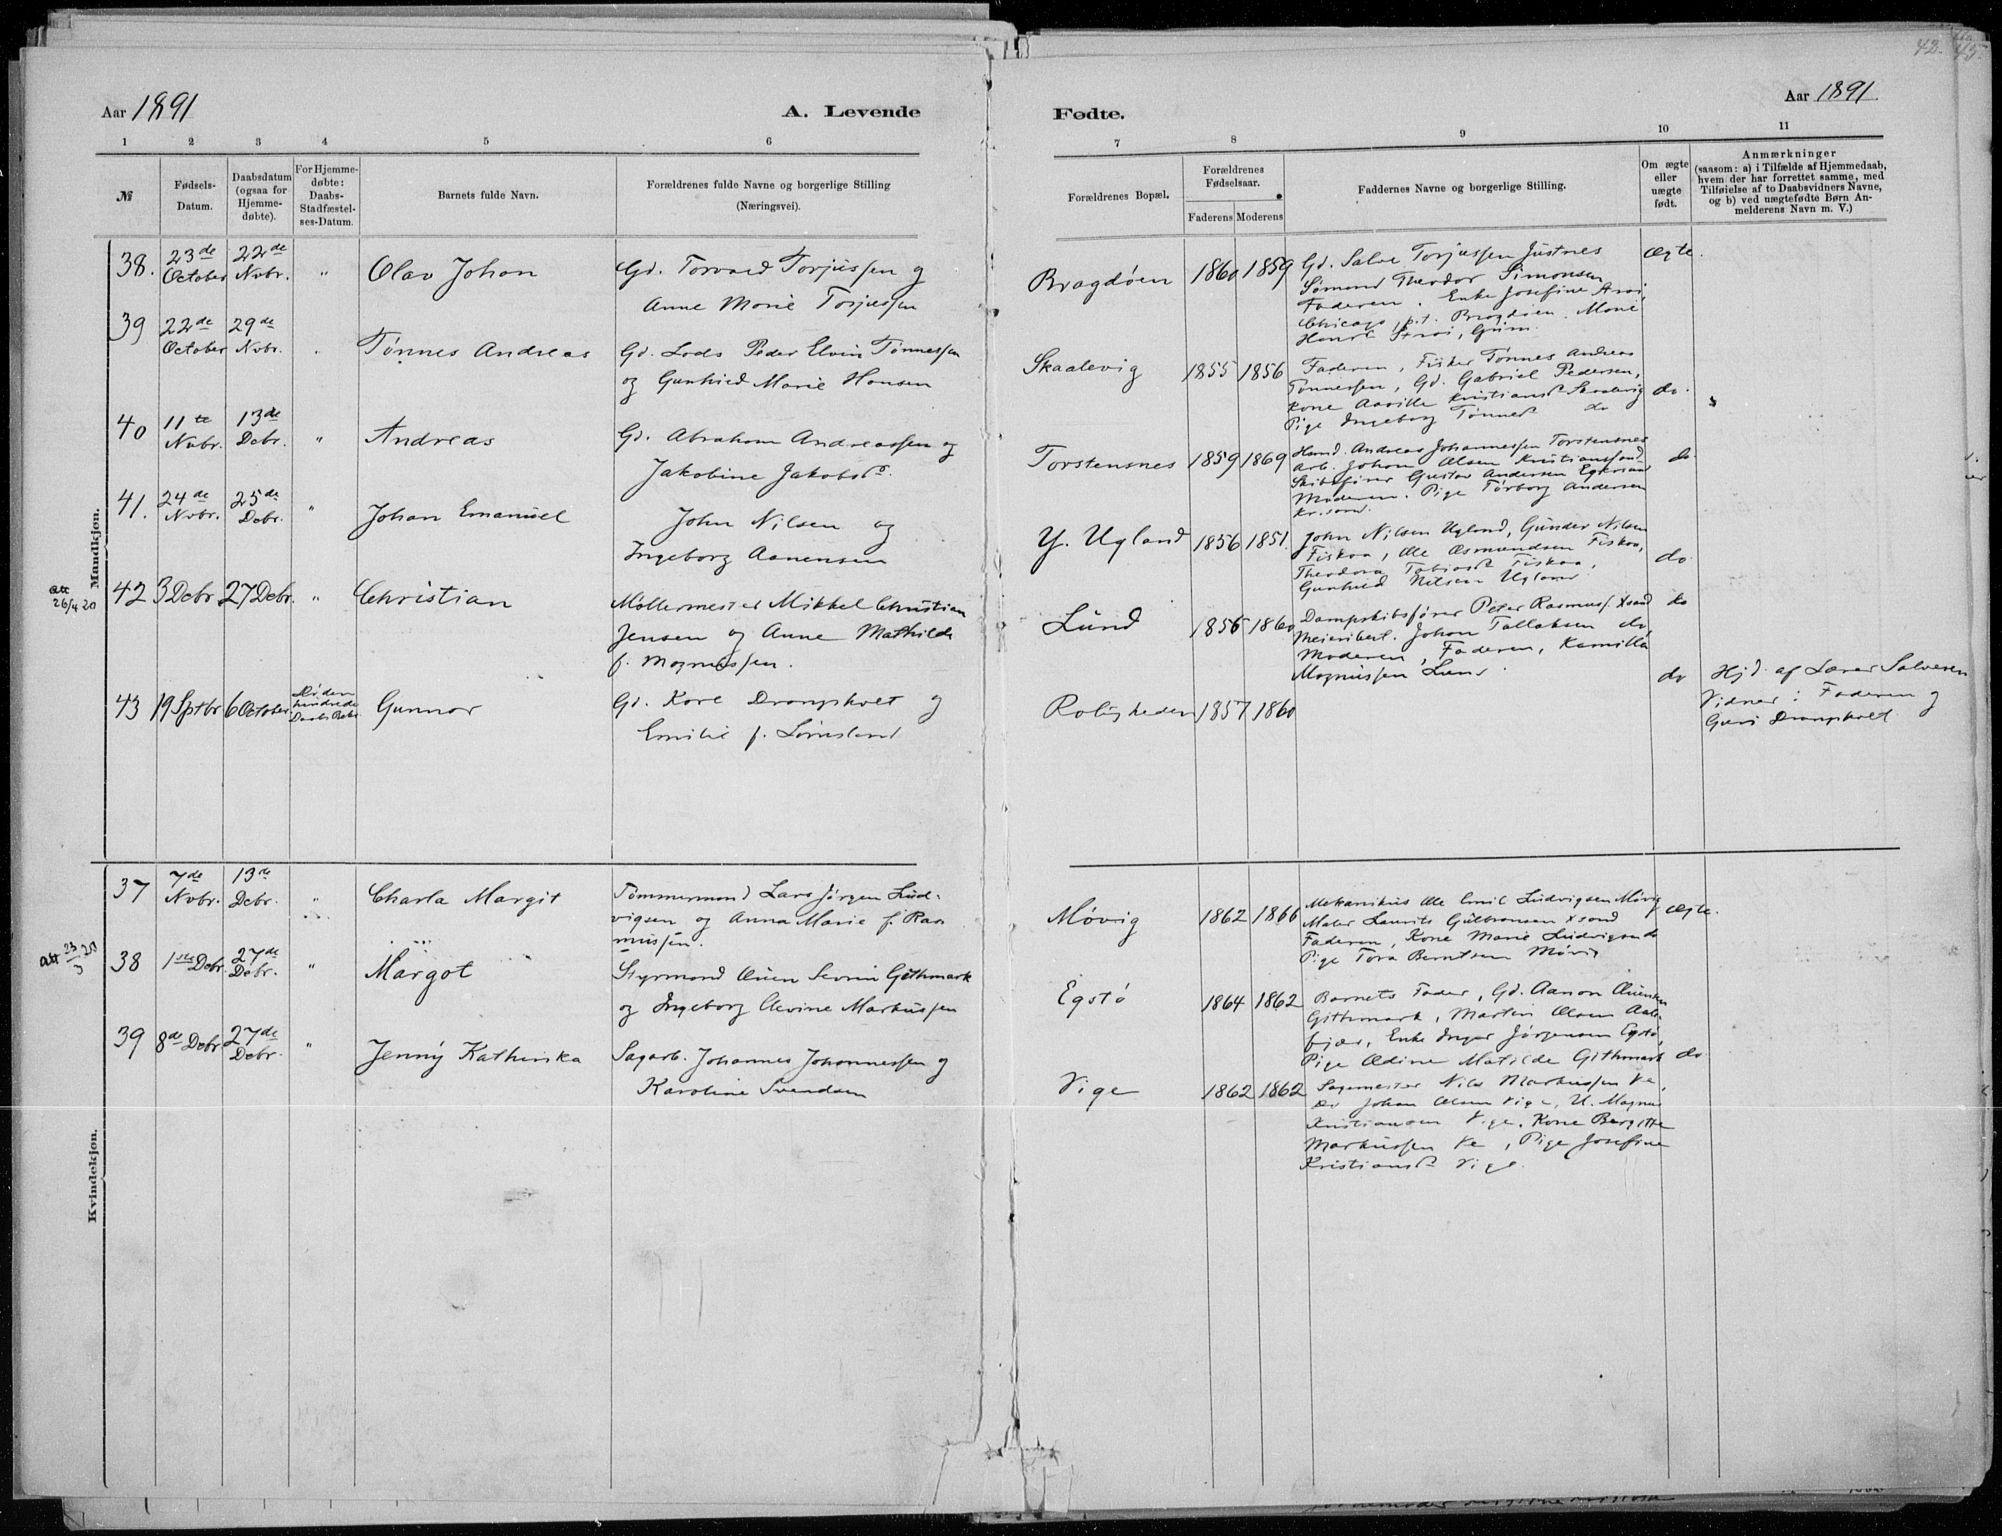 42. 45.
Aar 1891
A. Levende
Fødte.
Aar 1891
1 2 3 4 5 6
7 8 9 10 11
№
Fødsels-
Datum.
Daabsdatum
(ogsaa for
Hjemme-
døbte).
For Hjemme-
døbte:
Daabs-
Stadfæstel-
ses-Datum.
Barnets fulde Navn.
Forældrenes fulde Navne og borgerlige Stilling
(Næringsvei).
Forældrenes Bopæl.
Forældrenes
Fødselsaar.
Faderens Moderens
Faddernes Navne og borgerlige Stilling.
Om ægte
eller
uægte
født.
Anmærkninger
(saasom: a) i Tilfælde af Hjemmedaab,
hvem der har forrettet samme, med
Tilføielse af to Daabsvidners Navne,
og b) ved uægtefødte Børn An-
melderens Navn m. V.)
Mandkjøn.
38. 23de October 22de Novbr. " Olav Johan
Gd. Torvald Torjussen og
Anne Marie Torjussen
Bragdøen 1860 1859
Gd. Salve Torjussen Justnes
Sømand Theodor Simonsen
Faderen. Enke Josefine
Chicago, p.t. Bragdøen. Marie
ægte.
39 22de October 29de Novbr. " Tønnes Andreas
Gd. Lods Peder Elvin Tønnessen
og Gunhild Marie Hansen
Skaalevig 1855 1856
Faderen, Fisker Tønnes Andreas
Tønnessen, Gd. Gabriel Pedersen,
Kone Aasille Kristiansd. Skaalevig
Pige Ingeborg Tønnesd. do
do.
40 11te Novbr. 13de Debr. " Andreas
Gd. Abraham Andreassen og
Jakobine Jakobsd.
Torstensnes 1859 1869
Hand. Andreas Johannessen Torstensnes
Arb. Johan Olsen Kristianssand
Skibsfører Gustav Andersen Egersund
Moderen. Pige Torborg Andersen
Kr.sand.
do
41. 24de Novbr. 25de Debr. " Johan Emanuel
John Nilsen og
Ingeborg Aanensen
Y. Ugland 1856 1851.
John Nilsen Ugland, Gunder Nilsen
Fiskaa, Ole Osmundsen Fiskaa,
Theodora Tobiasd. Fiskaa,
Gunhild Nilsen Ugland
do
att
26/4 20
42 3 Debr 27 Debr. " Christian
Møllermester Mikkel Christian
Jensen og Anne Mathilde
f. Magnussen.
Lund 1856 1860
Dampskibsfører Peter Rasmuss. Xsand
Meieribest. Johan Tallaksen do,
Moderen, Faderen, Kamilla
Magnussen Lund.
do
43 19 Sptbr 6 October Gunnar
Gd. Kare Drangsholt og
Emilie f. Lømsland
Roligheden 1857 1860
do
Hjd. af Lærer Salvesen
Vidner: Faderen og
Guri Drangsholt.
Kvindekjøn.
37 7de Novbr. 13de Debr. " Charla Margit
Tømmermand Lars Jørgen Lud-
vigsen og Anna Marie f. Ras
mussen.
Møvig 1862 1866
Mekanikus Ole Emil Ludvigsen Møvig
Maler Laurits Gulbransen Xsand
Faderen, Kone Marie Ludvigsen do
Pige Tora Berntsen Møvig
ægte.
att 23/3 20
38 1ste Debr. 27de Debr. " Margot
Styrmand Ouen Severin Githmark
og Ingeborg Olevine Markussen
Egstø 1864 1862
Barnets Fader, Gd. Aanon Ouensen
Githmark, Martin Olsen Aale-
fjær, Enke Inger Jørgensen Egstø,
Pige Odine Matilde Githmark
do
39 8de Debr. 27de Debr. " Jenny Kathinka
Sagarb. Johannes Johannessen og
Karoline Svendsen
Vige 1862 1862
Sagmester Nils Markussen Ve,
do Johan Olsen Vige, U. Magnus
Kristiansen Vige. Kone Bergitte
Markussen Ve, Pige Josefine
Kristiansd. Vige.